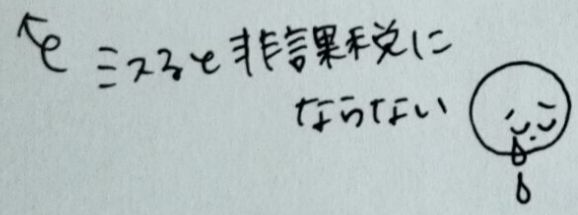 ミスると非課税に
ならない